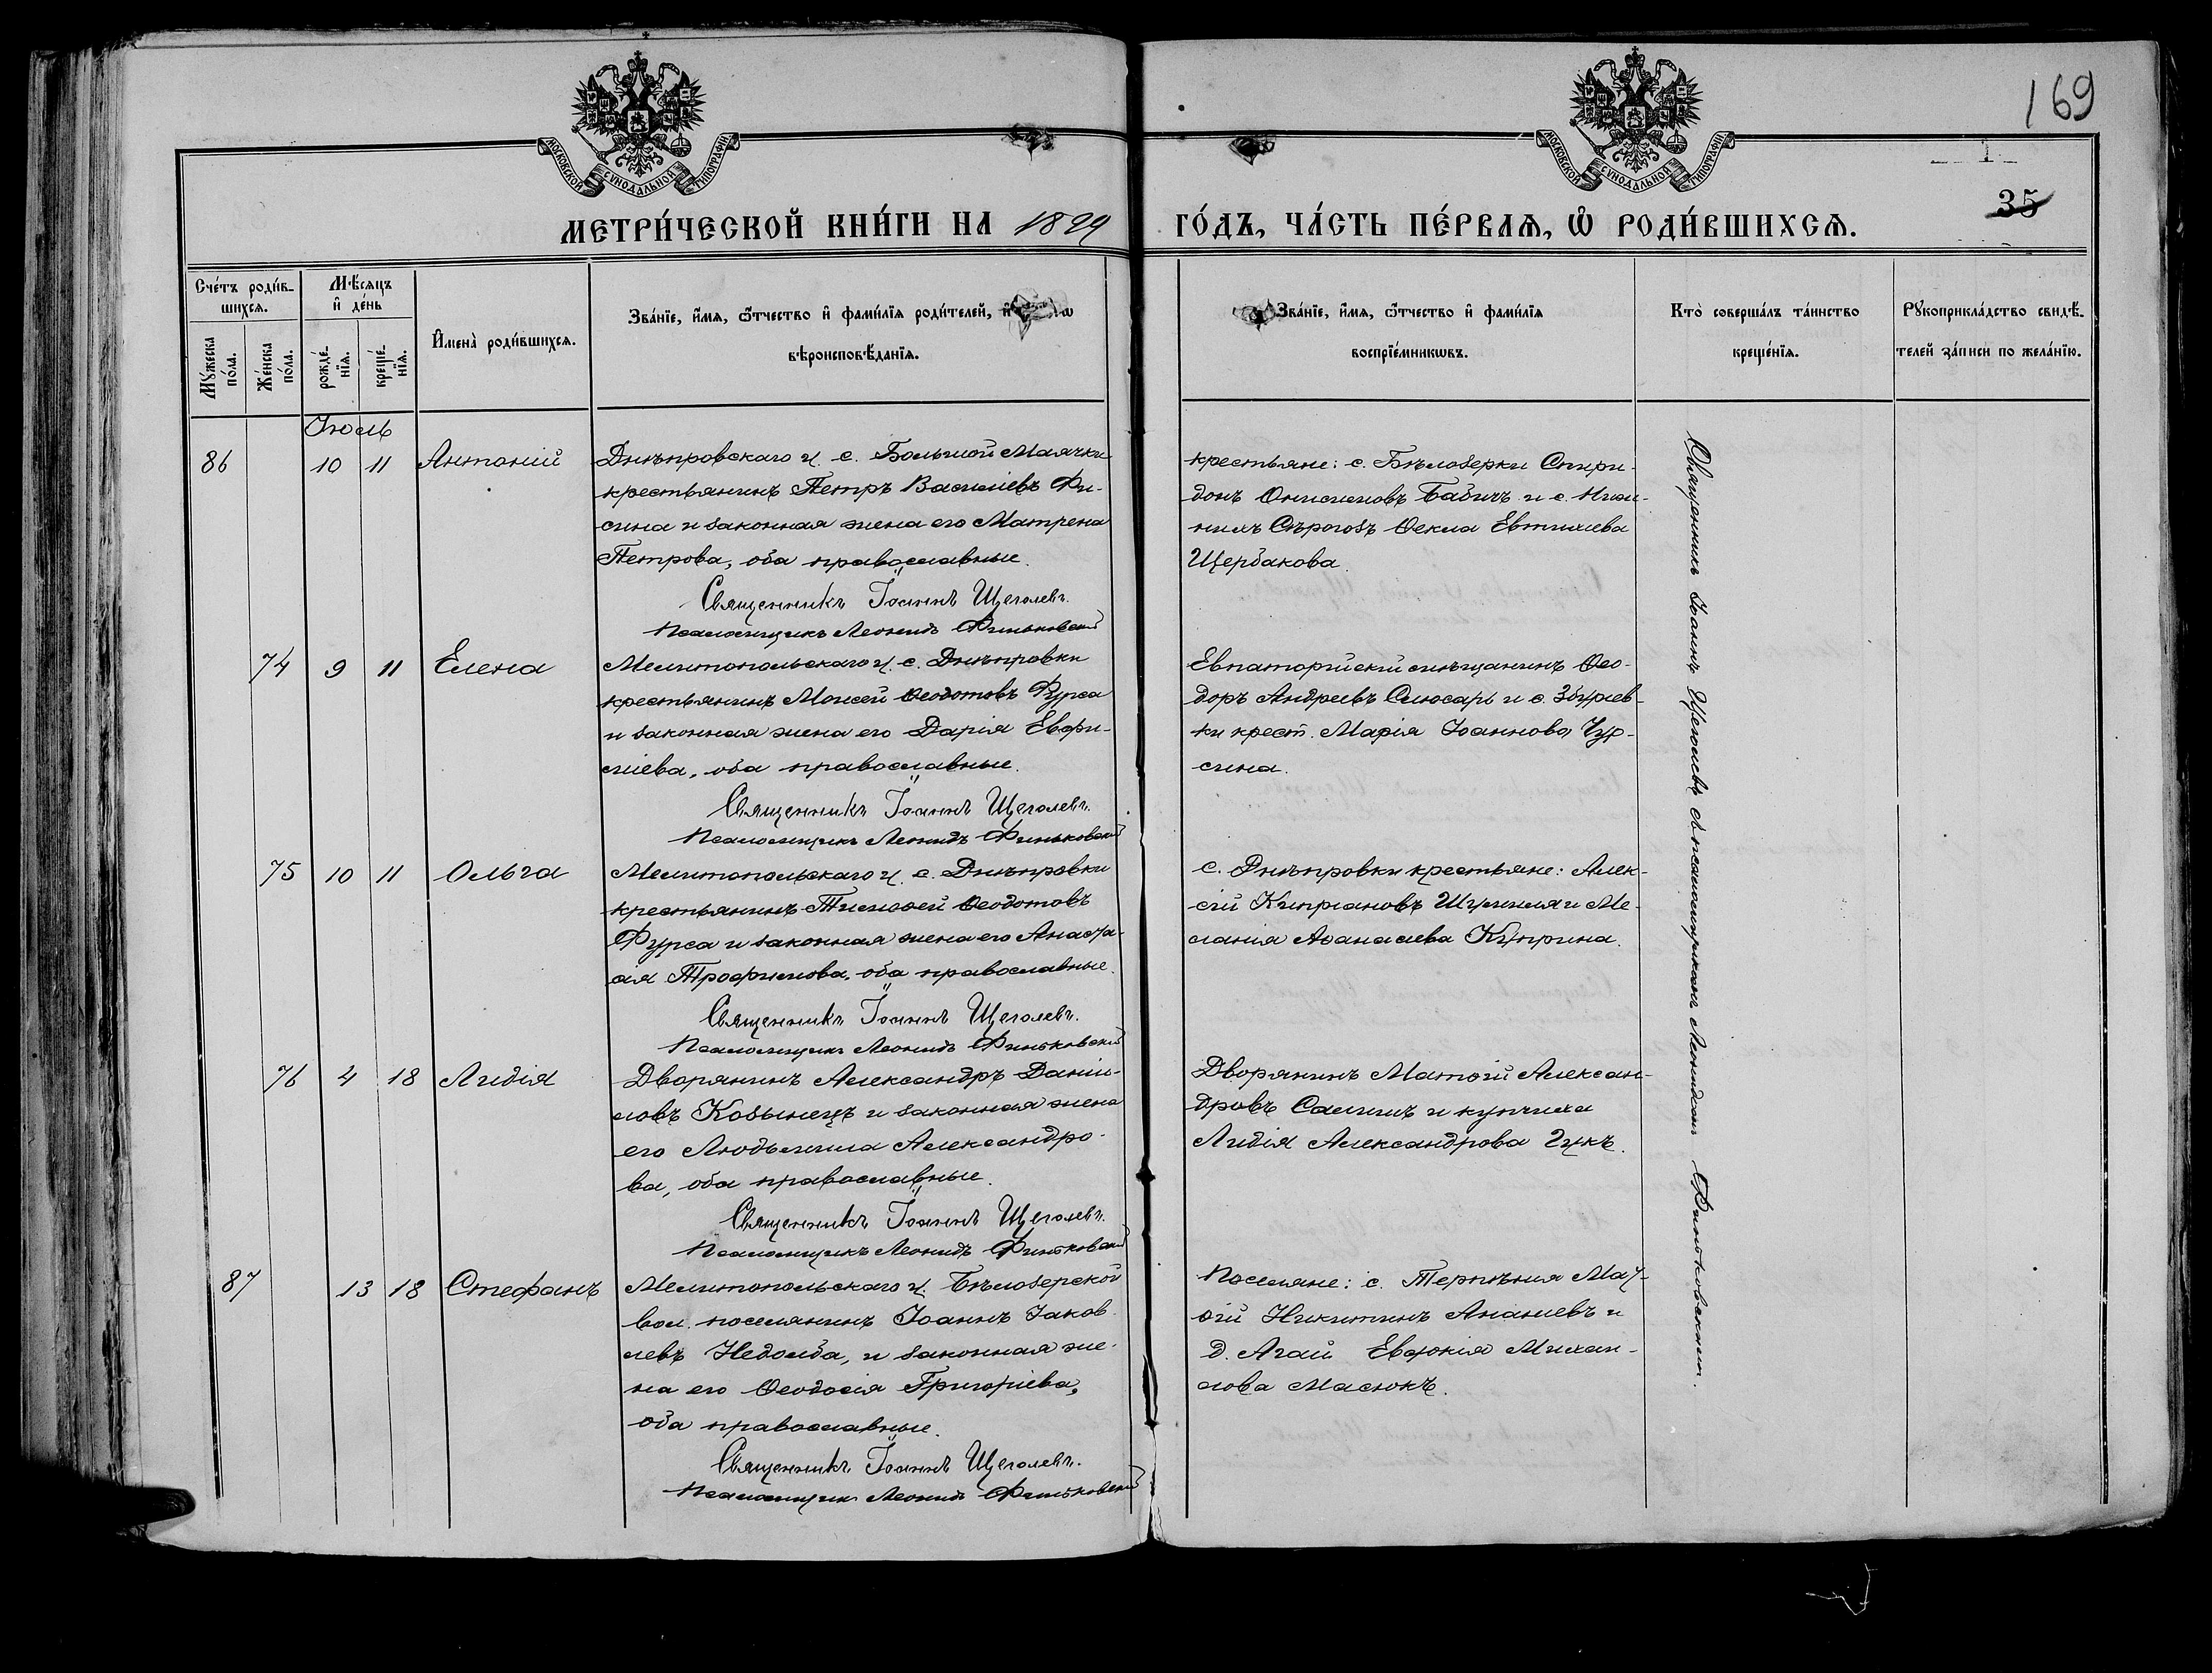 169
МОСКОВСКОЙ СУНОДАЛЬНОЙ ТИПОГРАФІИ
МОСКОВСКОЙ СУНОДАЛЬНОЙ ТИПОГРАФІИ
35
МЕТРИ́ЧЕСКОЙ КНИ́ГИ НА 1899 ГО́ДЪ, ЧА́СТЬ ПЕ́РВАѦ, Ѡ РОДИ́ВШИХСѦ.
Сче́тъ роди́в-
шихсѧ.
Му́жеска по́ла.
Же́нска по́ла.
Мѣ́сѧцъ
и҆ де́нь
рожде́-
нїѧ.
креще́-
нїѧ.
И҆мена̀ роди́вшихсѧ.
Зва́нїе, и҆́мѧ, ѻ҆́тчество и҆ фами́лїѧ роди́телей, и҆
вѣроисповѣ́данїѧ.
Зва́нїе, и҆́мѧ, ѻ҆́тчество и҆ фами́лїѧ
воспрїе́мникωвъ.
Кто̀ соверша́лъ та́инство
креще́нїѧ.
Рукоприкла́дство свидѣ́-
телей за́писи по жела́нїю.
Іюль
86 10 11 Антоній
Днѣпровскаго у. с. Большой Маячки
крестьянинъ Петръ Васильевъ Фи-
сина и законная жена его Матрена
Петрова, оба православные.
Священникъ Іоаннъ Щеголевъ.
Псаломщикъ Леонидъ Финьковскій
крестьяне: с. Бѣлозерки Спири-
донъ Онисимовъ Бабичъ и с. Ниж-
нихъ Сѣрогозъ Ѳекла Евтихіева
Щербакова.
74 9 11 Елена
Мелитопольскаго у. с. Днѣпровки
крестьянинъ Моисей Ѳеодотовъ Фурса
и законная жена его Дарія Евфи-
міева, оба православные.
Священникъ Іоаннъ Щеголевъ.
Псаломщикъ Леонидъ Финьковскій
Евпаторійскій мѣщанинъ Ѳео-
доръ Андреевъ Слюсарь и с. Збурьев-
ки крест. Марія Іоаннова Чур-
сина.
75 10 11 Ольга
Мелитопольскаго у. с. Днѣпровки
крестьянинъ Тимоѳей Ѳеодотовъ
Фурса и законная жена его Анаста-
сія Трофимова, оба православные.
Священникъ Іоаннъ Щеголевъ.
Псаломщикъ Леонидъ Финьковскій
с. Днѣпровки крестьяне: Алек-
сій Кипріановъ и Ме-
ланія Аѳанасіева Куприна.
76 4 18 Лидія
Дворянинъ Александръ Даніи-
ловъ Кобынецъ и законная жена
его Людьмила Александро-
ва, оба православные.
Священникъ Іоаннъ Щеголевъ.
Псаломщикъ Леонидъ Финьковскій
Дворянинъ Матѳій Алексан-
дровъ и купчиха
Лидія Александрова Гукъ.
87 13 18 Стефанъ
Мелитопольскаго у. Бѣлозерской
вол. поселянинъ Іоаннъ Іаков-
левъ Недолба, и законная же-
на его Ѳеодосія Григоріева,
оба православные.
Священникъ Іоаннъ Щеголевъ.
Псаломщикъ Леонидъ Финьковскій
Поселяне: с. Терпѣнія Мат-
ѳій Никитинъ Ананьевъ и
д. Агай Евфокія Михаи-
лова Масюкъ.
Священникъ Іоаннъ Щеголевъ съ псаломщикомъ Леонидомъ Финьковскимъ.